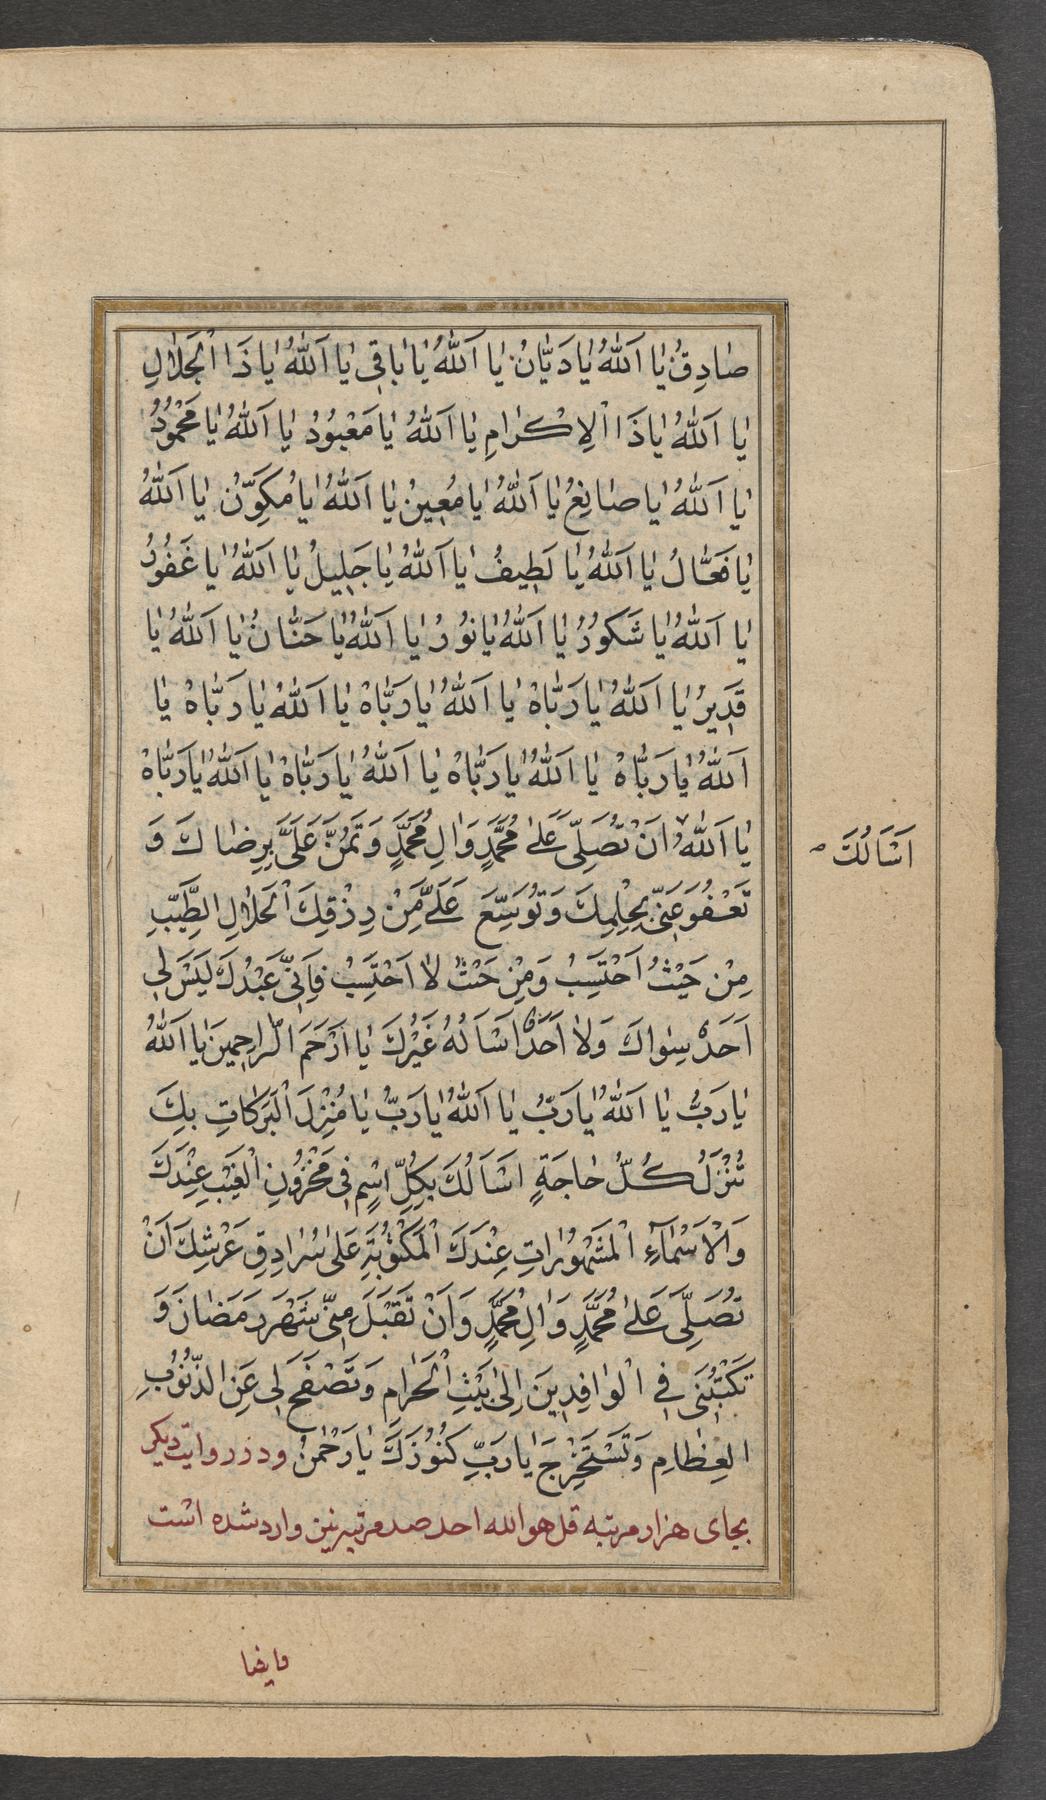 صٰادِقُ یٰا اَللّٰهُ یٰا دَیّٰانُ یٰا اَللّٰهُ یٰا بٰاقِی یٰا اَللّٰهُ یٰا ذَا الْجَلٰالِ
یٰا اَللّٰهُ یٰا ذَا الْاِکْرٰامِ یٰا اَللّٰهُ یٰا مَعْبُودُ یٰا اَللّٰهُ یٰا مَحْمُودُ
یٰا اَللّٰهُ یٰا صٰانِعُ یٰا اَللّٰهُ یٰا مُعِینُ یٰا اَللّٰهُ یٰا مُکَوِّنُ یٰا اَللّٰهُ
یٰا فَعّٰالُ یٰا اَللّٰهُ یٰا لَطِیفُ یٰا اَللّٰهُ یٰا جَلِیلُ یٰا اَللّٰهُ یٰا غَفُورُ
یٰا اَللّٰهُ یٰا شَکُورُ یٰا اَللّٰهُ یٰا نُورُ یٰا اَللّٰهُ یٰا حَنّٰانُ یٰا اَللّٰهُ یٰا
قَدِیرُ یٰا اَللّٰهُ یٰا رَبّٰاهْ یٰا اَللّٰهُ یٰا رَبّٰاهْ یٰا اَللّٰهُ یٰا رَبّٰاهْ یٰا
اَللّٰهُ یٰا رَبّٰاهْ یٰا اَللّٰهُ یٰا رَبّٰاهْ یٰا اَللّٰهُ یٰا رَبّٰاهْ یٰا اَللّٰهُ یٰا رَبّٰاهْ
یٰا اَللّٰهُ اَنْ تُصَلِّیَ عَلیٰ مُحَمَّدٍ وَ اٰلِ مُحَمَّدٍ وَ تَمُنَّ عَلَیَّ بِرِضٰاکَ وَ
اَسْاَلُکَ
تَعْفُوَ عَنِّی بِحِلْمِکَ وَ تُوَسِّعَ عَلَیَّ مِنْ رِزْقِکَ الْحَلٰالِ الطَّیِّبِ
مِنْ حَیْثُ اَحْتَسِبُ وَ مِنْ حَیْثُ لٰا اَحْتَسِبُ فَاِنِّی عَبْدُکَ لَیْسَ لِی
اَحَدٌ سِوٰاکَ وَ لٰا اَحَدٌ اَسْاَلُهُ غَیْرُکَ یٰا اَرْحَمَ الرّٰاحِمِینَ یٰا اَللّٰهُ
یٰا رَبُّ یٰا اَللّٰهُ یٰا رَبُّ یٰا اَللّٰهُ یٰا رَبُّ یٰا مُنْزِلَ الْبَرَکٰاتِ بِکَ
تُنْزَلُ کُلُّ حٰاجَةٍ اَسْاَلُکَ بِکُلِّ اسْمٍ فِی مَخْزُونِ الْغَیْبِ عِنْدَکَ
وَ الْاَسْمٰآءِ الْمَشْهُورٰاتِ عِنْدَکَ الْمَکْتُوبَةِ عَلیٰ سُرٰادِقِ عَرْشِکَ اَنْ
تُصَلِّیَ عَلیٰ مُحَمَّدٍ وَ اٰلِ مُحَمَّدٍ وَ اَنْ تَقْبَلَ مِنِّی شَهْرَ رَمَضٰانَ وَ
تَکْتُبَنِی فِی الْوٰافِدِینَ اِلیٰ بَیْتِ الْحَرٰامِ وَ تَصْفَحَ لِی عَنِ الذُّنُوبِ
العِظٰامِ وَ تَسْتَخْرِجَ یٰا رَبِّ کُنُوزَکَ یٰا رَحْمٰنُ و در روایت دیکر
بجای هزار مرتبه قل هو الله احد صد مرتبه نیز وارد شده است